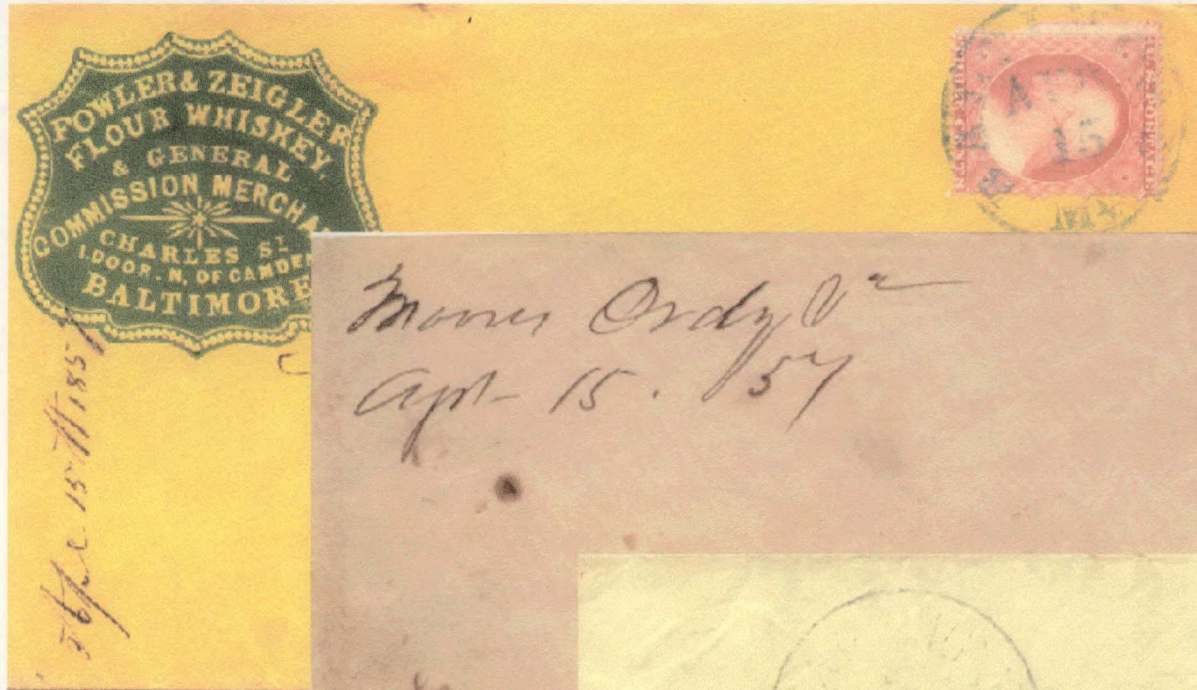 FOWLER & ZEIGLER
FLOUR WHISKEY,
& GENERAL
COMMISSION MERCHA
CHARLES ST.
1.DOOR.N. OF CAMDEN
BALTIMORE
15th 1857
APR
15
U.S. POSTAGE
THREE CENTS
Ordy Va
Apr 15. 57